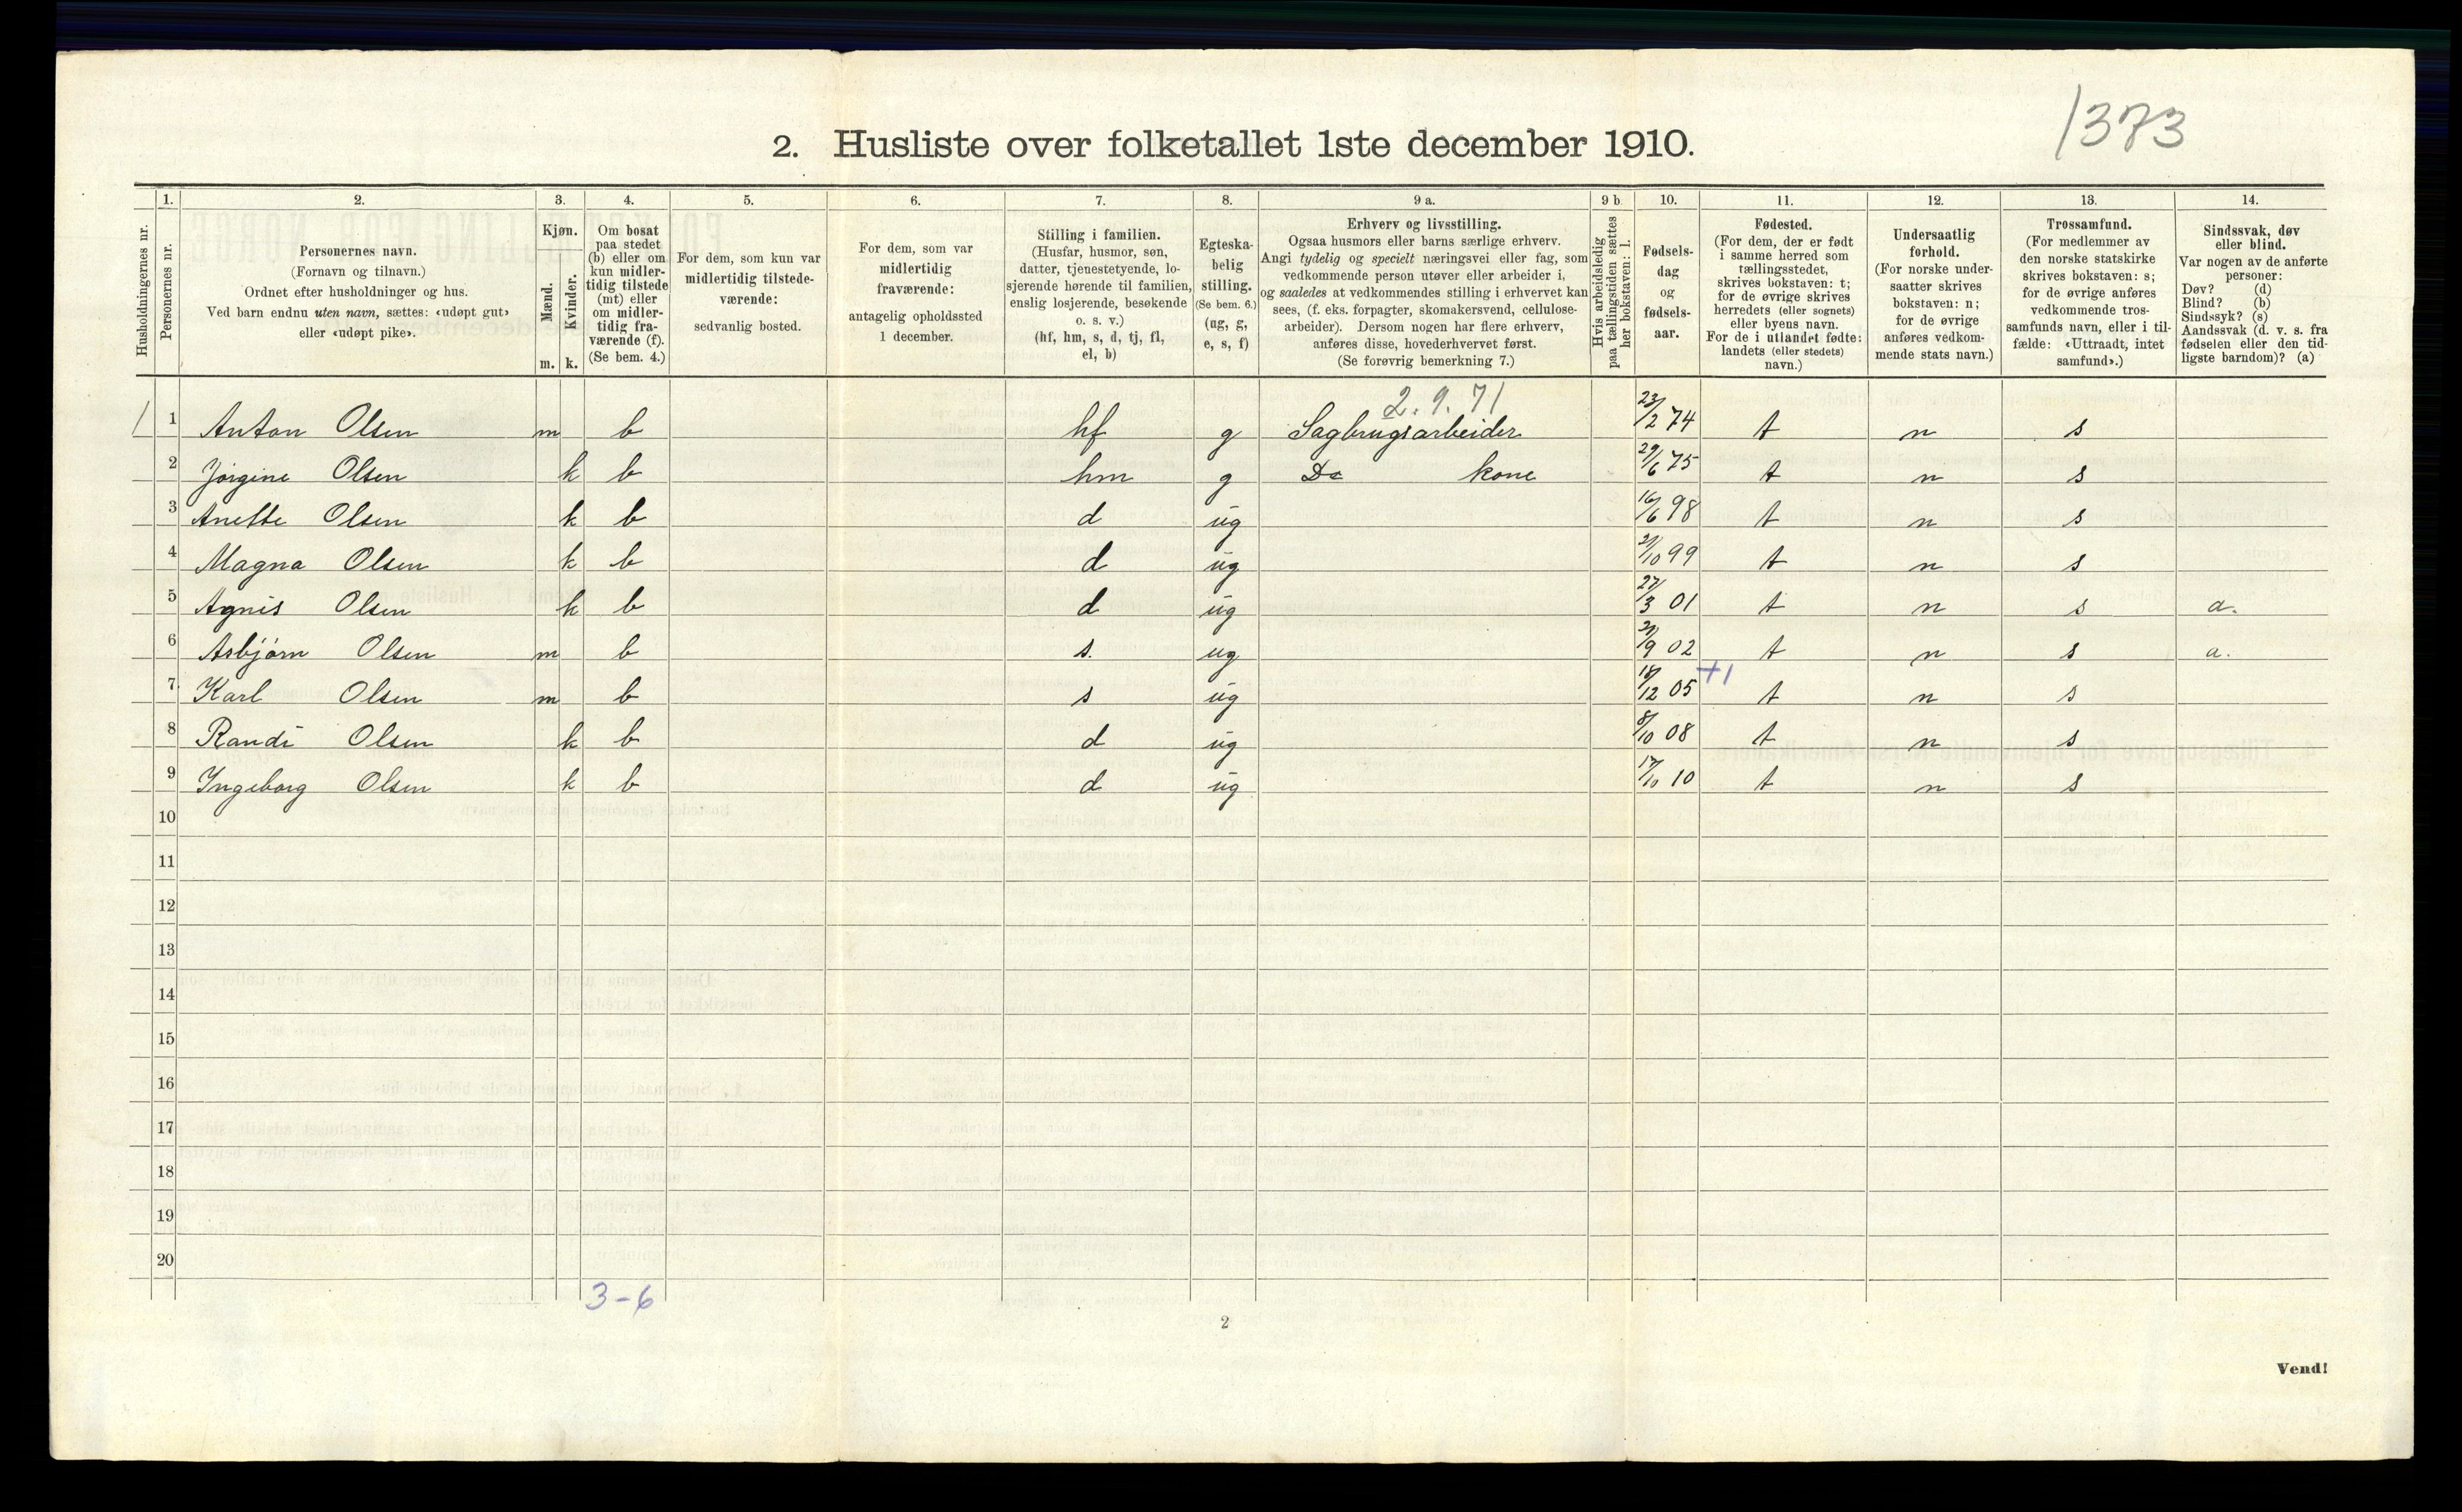 1373
2. Husliste over folketallet 1ste december 1910.
Husholdningernes nr.
1.
Personernes nr.
2.
Personernes navn.
(Fornavn og tilnavn.)
Ordnet efter husholdninger og hus.
Ved barn endnu uten navn, sættes: «udøpt gut»
eller «udøpt pike».
3.
Kjøn.
Mænd.
Kvinder.
m. k.
4.
Om bosat
paa stedet
(b) eller om
kun midler-
tidig tilstede
(mt) eller
om midler-
tidig fra-
værende (f).
(Se bem. 4.)
5.
For dem, som kun var
midlertidig tilstede-
værende:
sedvanlig bosted.
6.
For dem, som var
midlertidig
fraværende:
antagelig opholdssted
1 december.
7.
Stilling i familien.
(Husfar, husmor, søn,
datter, tjenestetyende, lo-
sjerende hørende til familien,
enslig losjerende, besøkende
o. s. v.)
(hf, hm, s, d, tj, fl,
el, b)
8.
Egteska-
belig
stilling.
(Se bem. 6.)
(ug, g,
e, s, f)
9 a.
Erhverv og livsstilling.
Ogsaa husmors eller barns særlige erhverv.
Angi tydelig og specielt næringsvei eller fag, som
vedkommende person utøver eller arbeider i,
og saaledes at vedkommendes stilling i erhvervet kan
sees, (f. eks. forpagter, skomakersvend, cellulose-
arbeider). Dersom nogen har flere erhverv,
anføres disse, hovederhvervet først.
(Se forøvrig bemerkning 7.)
9 b
Hvis arbeidsledig
paa tællingstiden sættes
her bokstaven: l.
10.
Fødsels-
dag
og
fødsels-
aar.
11.
Fødested.
(For dem, der er født
i samme herred som
tællingsstedet,
skrives bokstaven: t;
for de øvrige skrives
herredets (eller sognets)
eller byens navn.
For de i utlandet fødte:
landets (eller stedets)
navn.)
12.
Undersaatlig
forhold.
(For norske under-
saatter skrives
bokstaven: n;
for de øvrige
anføres vedkom-
mende stats navn.)
13.
Trossamfund.
(For medlemmer av
den norske statskirke
skrives bokstaven: s;
for de øvrige anføres
vedkommende tros-
samfunds navn, eller i til-
fælde: «Uttraadt, intet
samfund».)
14.
Sindssvak, døv
eller blind.
Var nogen av de anførte
personer:
Døv? (d)
Blind? (b)
Sindssyk? (s)
Aandssvak (d. v. s. fra
fødselen eller den tid-
ligste barndom)? (a)
2.9.71
1 1 Anton Olsen m b hf g Sagbrugsarbeider 23/2 74 t n s
2 Jørgine Olsen k b hm g Do kone 29/6 75 t n s
3 Anette Olsen k b d ug 16/6 98 t n s
4 Magna Olsen k b d ug 21/10 99 t n s
5 Agnis Olsen k b d ug 27/3 01 t n s a.
6 Asbjørn Olsen m b s. ug 21/9 02 t n s a.
+1
7. Karl Olsen m b s ug 18/12 05 t n s
8 Randi Olsen k b d ug 8/10 08 t n s
9 Ingeborg Olsen k b d ug 17/10 10 t n s
10
11
12
13
14
15
16
17
18
19
20
3-6
2
Vend!